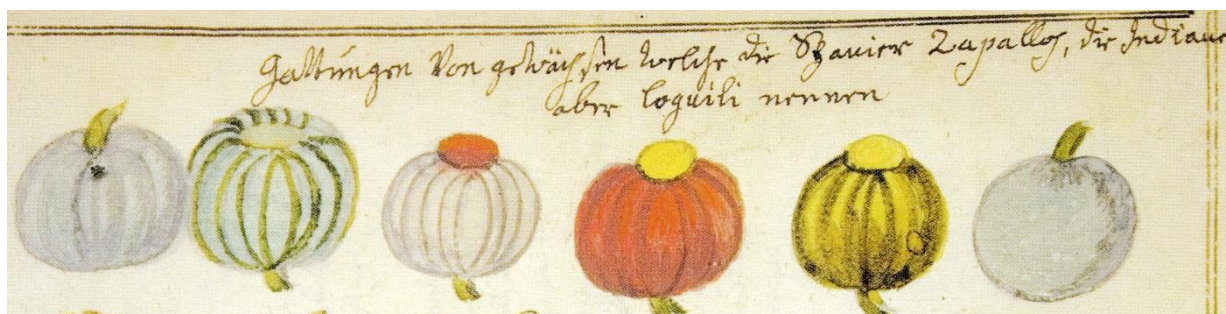 Gattungen Von gewächsen welche die Spanier Zapallos, die Indianer
aber loquili nennen